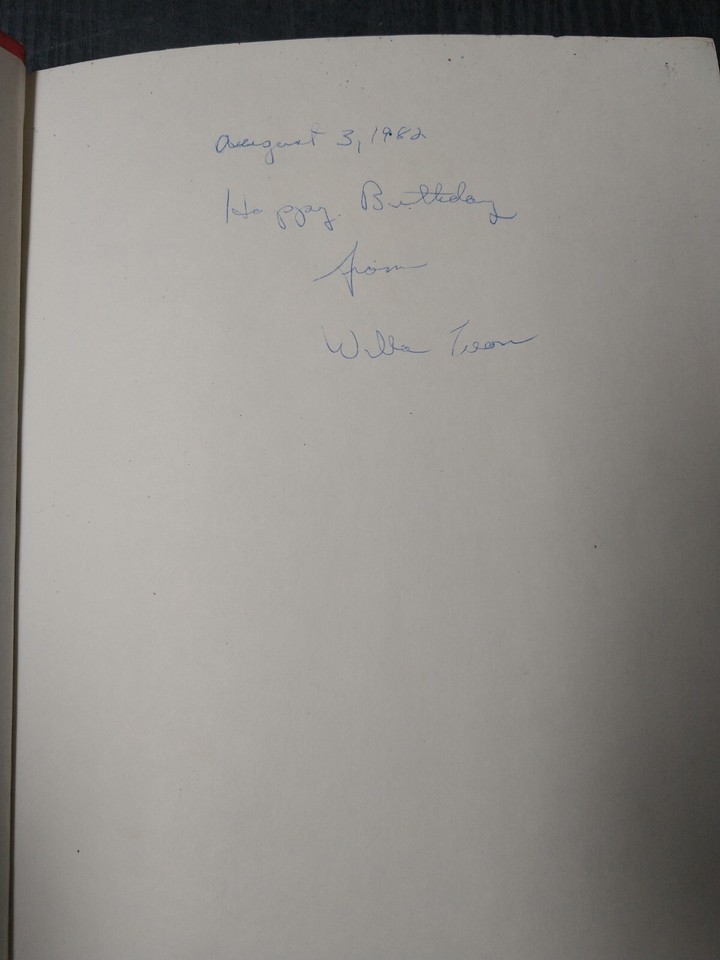 August 3, 1982
Happy Birthday
from
Willa